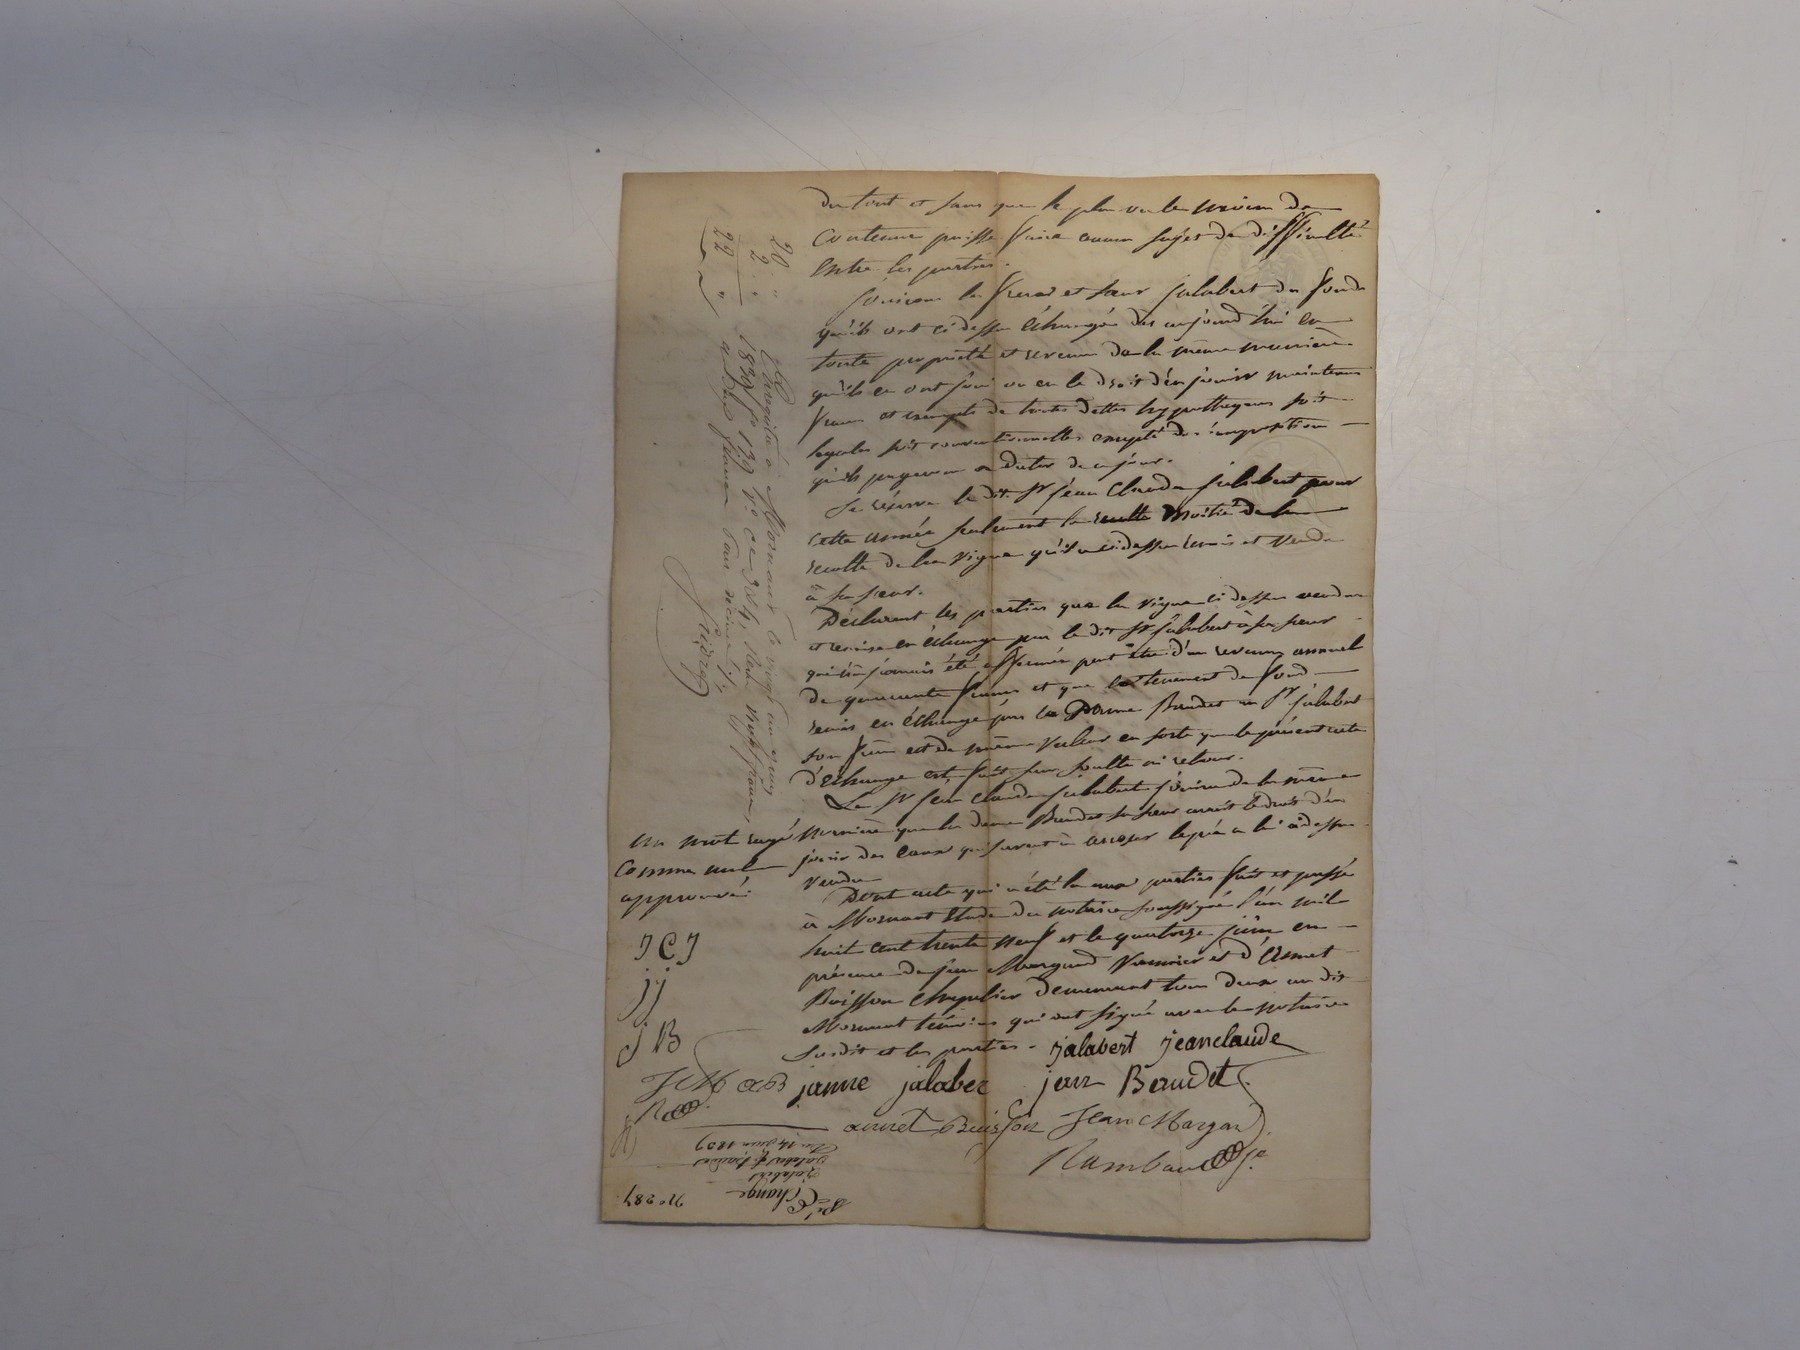 du tout et sans que le plus ou le moins de
contenue puisse faire aucun sujet de diffficultés
entre les parties.
Jouiront les frere et sœur Jalabert des fonds
qu'ils ont ci dessus échangés dès aujourd'hui en
toute propriété et revenu de la même manière
qu'ils en ont joui ou eu le droit d'en jouir maintenus
francs et exempts de toutes dettes hypothèques soit
legales soit conventionnelles excepté des impositions
qu'ils payeront a dater de ce jour.
Se réserve le dit Sr jean Claude Jalabert pour
cette année seulement la recolte moitié de la
recolte de la vigne qu'il a ci dessus remis et vendu
à sa sœur.
Déclarent les parties que la vigne ci dessus vendue
et remise en échange par le dit Sr Jalabert à sa sœur
qui n'a jamais été affermée peut être d'un revenu annuel
de quarante francs et que le tenement de fond
remis en échange par la Dame Baudet au Sr Jalabert
son frère est de même valeur en sorte que le présent acte
d'échange est fait sans soulte ni retour.
Le Sr Jean Claude Jalabert jouira de la même
manière que la dame Baudet sa sœur aurait le droit d'en
jouir des eaux qui servent à arroser le pré a lui ci dessus
vendu
Dont acte qui a été lu aux parties fait et passé
à Mornant étude du notaire soussigné l'an mil
huit cent trente neuf et le quatorze juin en
présence de Jean Margand et d'Annet
Buisson chapelier demeurant tous deux au dit
Mornant témoins qui ont signé avec le notaire
susdit et les parties. jalabert jeanclaude
janne jalaber jean Baudet
annet Buisson Jean Margand
Rambaud
un mot rayé
comme nul
approuvé
J C J
j j
j B
JCM aB
Enregistré à Mornant le vingt un juin
1839 fo 129 Vo ce 3 &4, Reçu vingt francs,
deux francs pour décime
20 "
2 "
22 "
No 287
Échange
Jalabert
Jalabert fe Baudet
Du 14 juin 1839